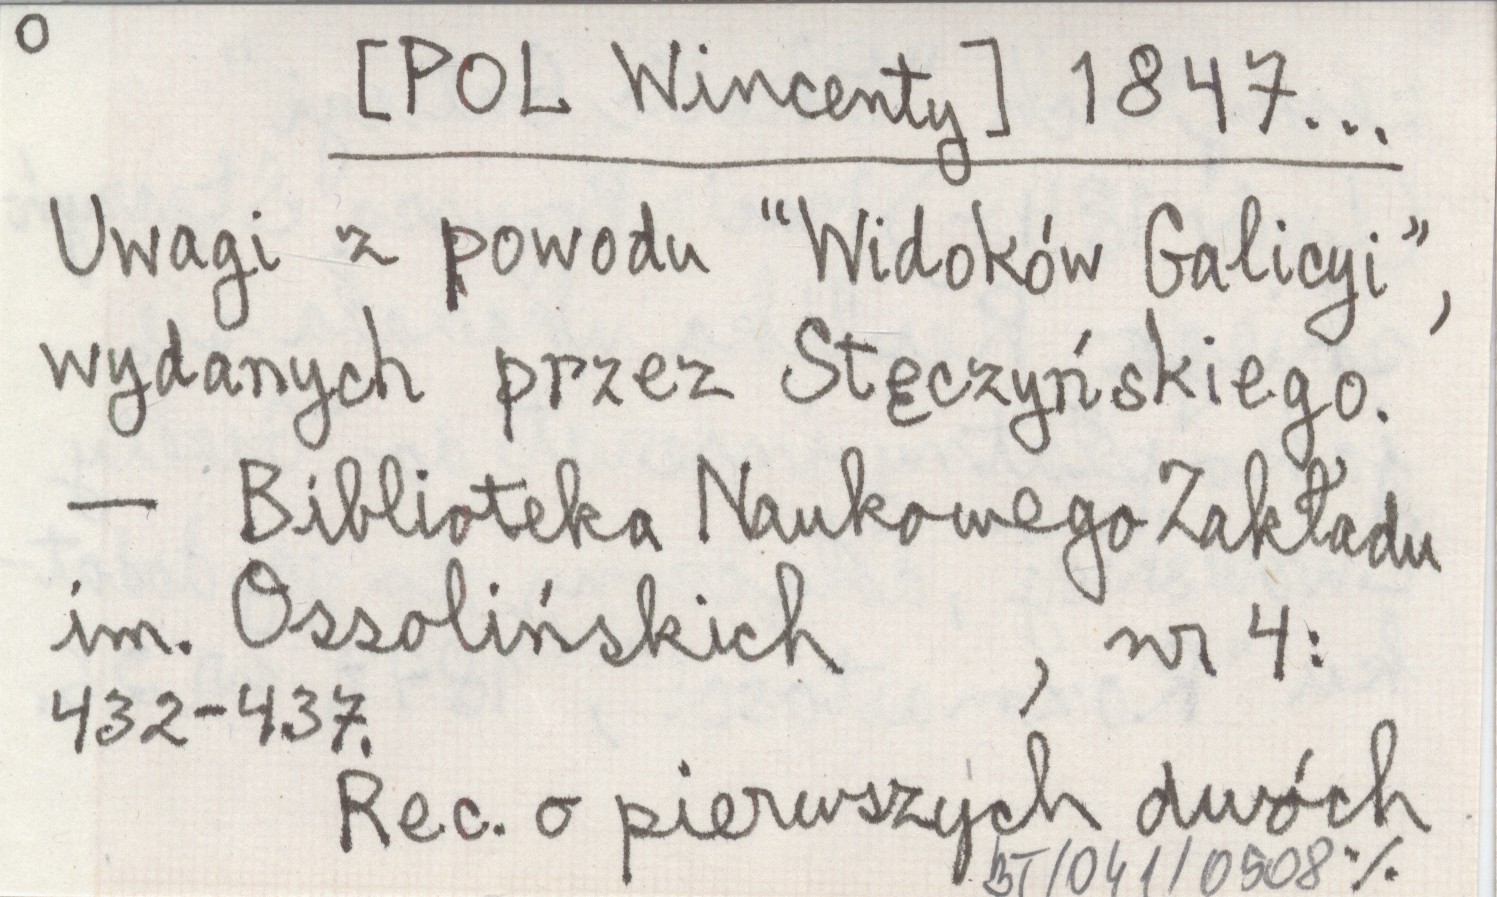 O
[POL Wincenty] 1847...
Uwagi z powodu "Widoków Galicyi",
wydanych przez Stęczyńskiego.
— Biblioteka Naukowego Zakładu
im. Ossolińskich , nr 4:
432-437.
Rec. o pierwszych dwóch
BT/041/0508 %